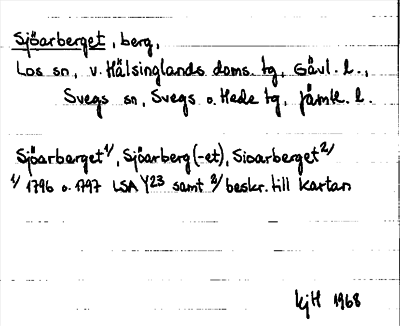 Sjöarberget, berg,
Los sn, v. Hälsinglands doms. tg, Gävl. l.,
Svegs sn, Svegs o. Hede tg, Jämtl. l.
Sjöarberget 1/, Sjöarberg (-et), Sioarberget 2/
1/ 1796 o. 1797 LSA Y23 samt 2/ beskr. till kartan
KjH 1968